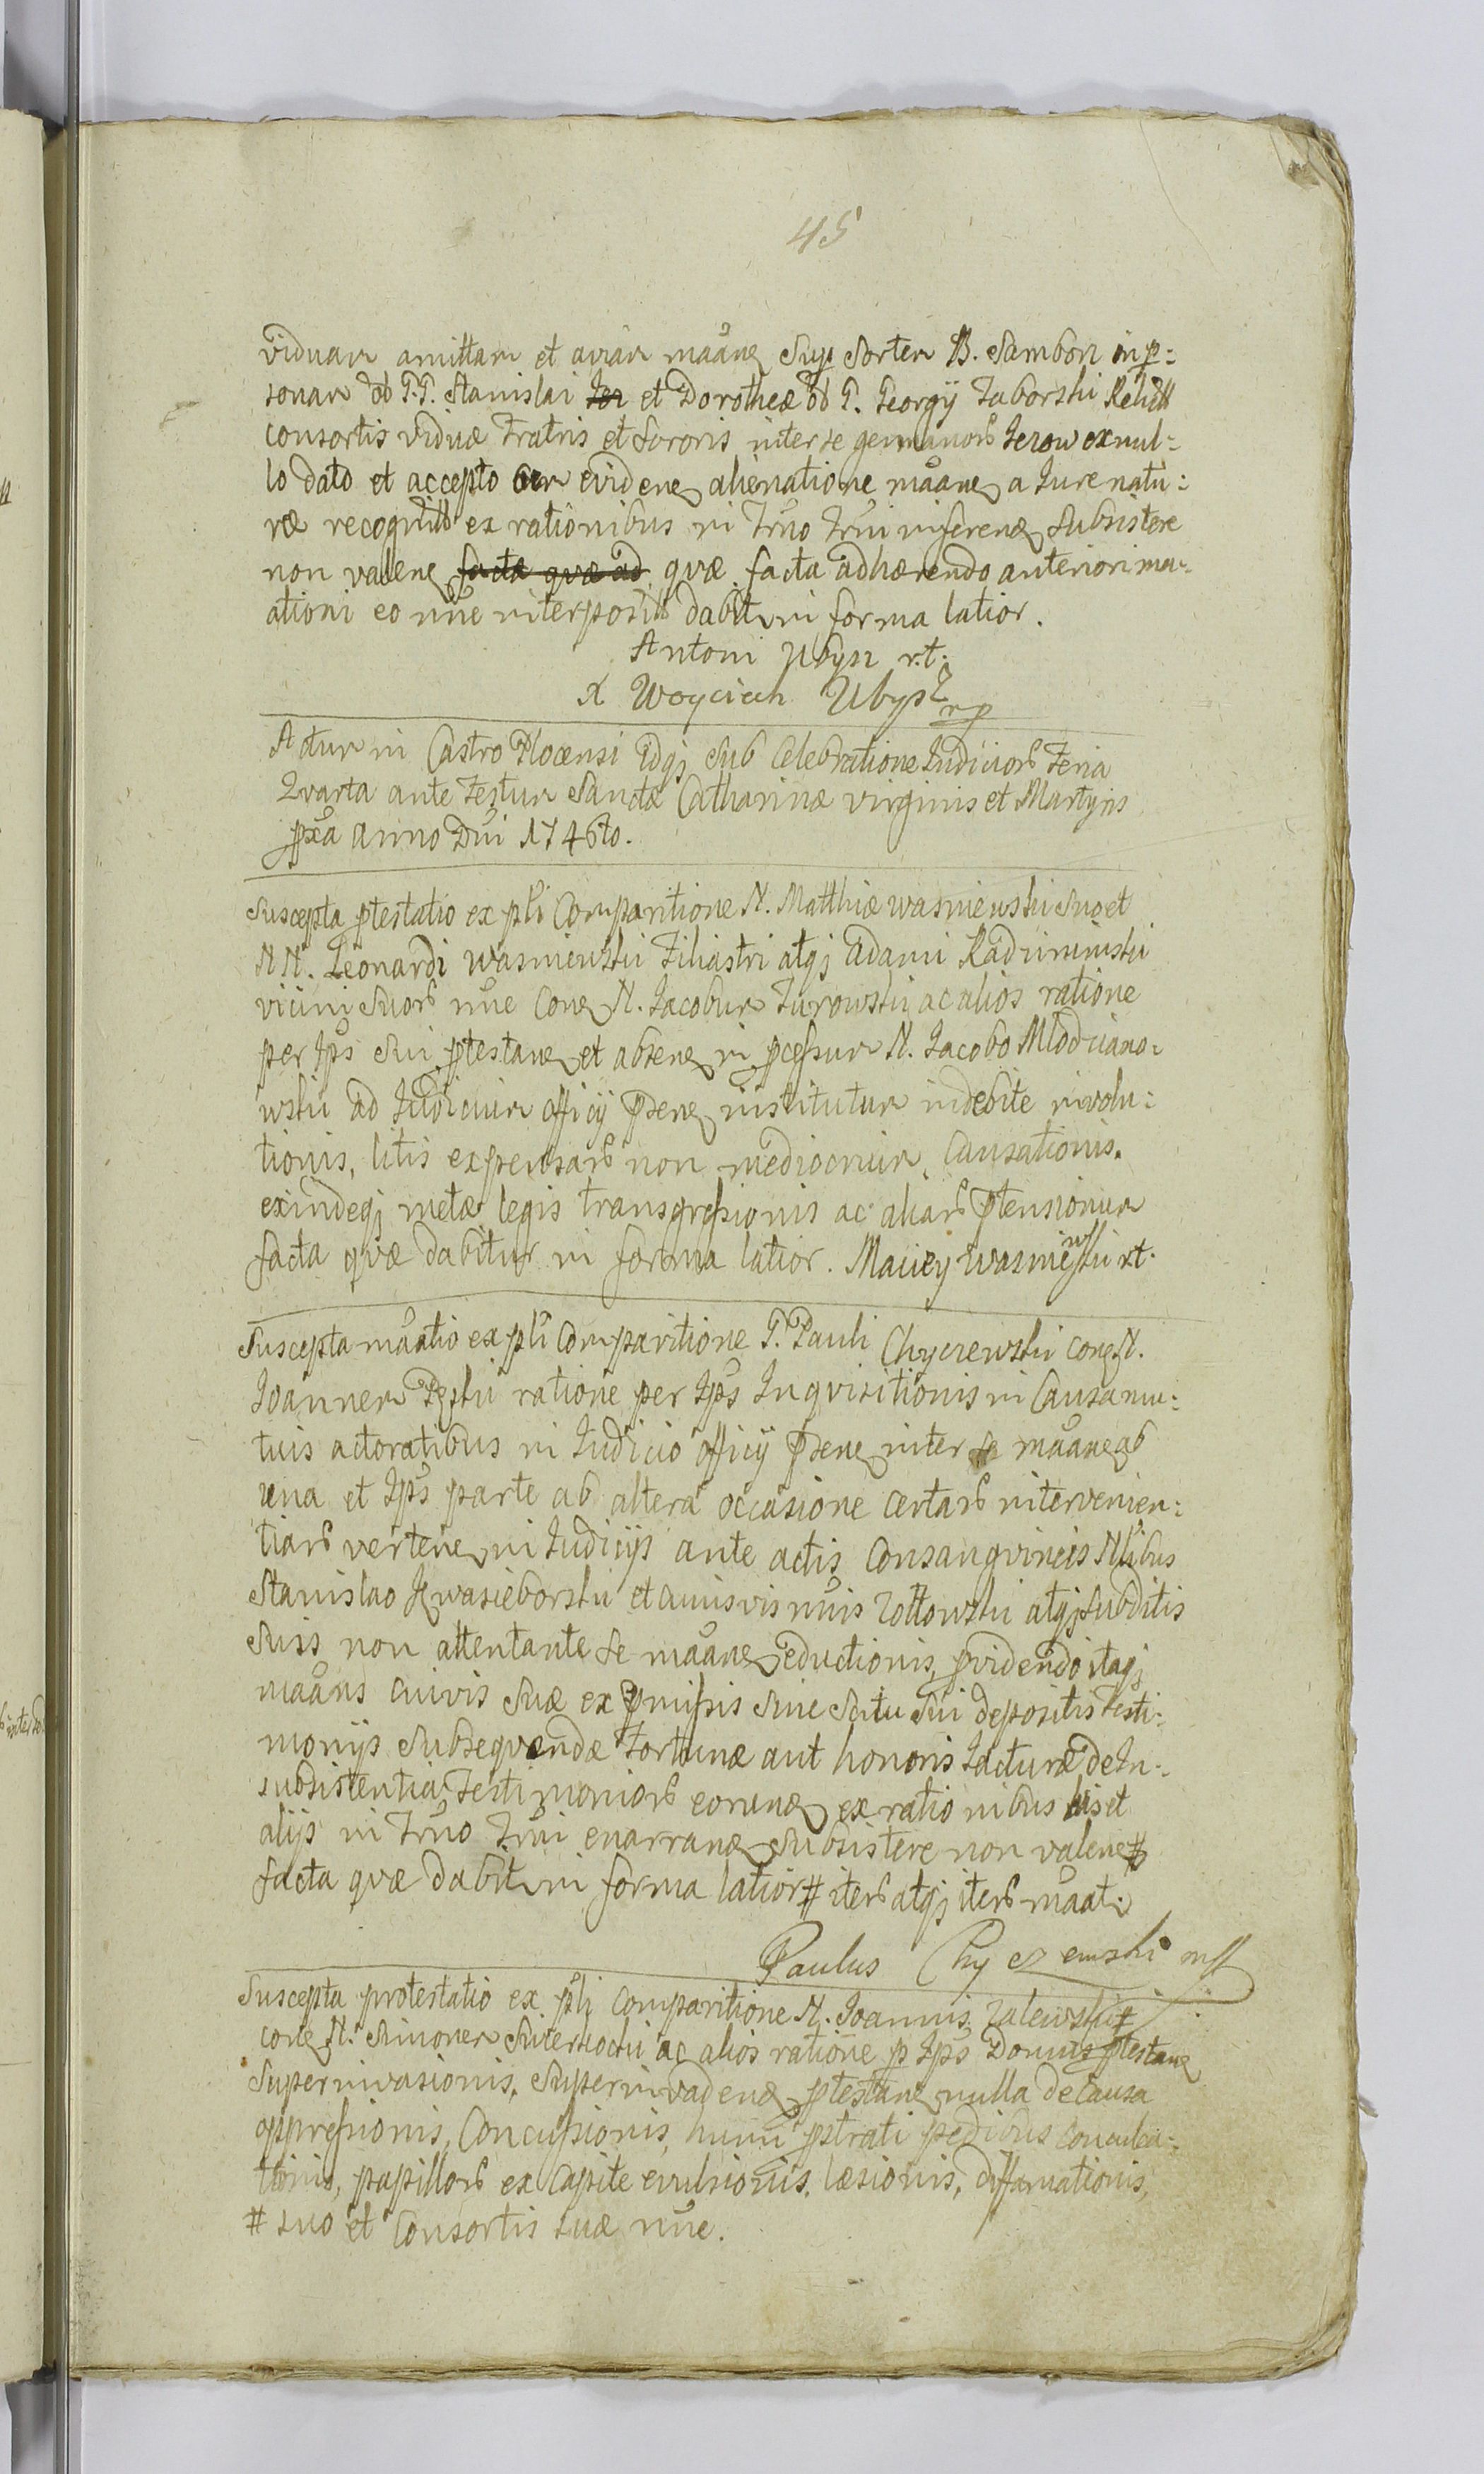 45
viduam amittam et aviam maãne Sup Sortem B. Sambon in p:
sonam ol G.G. Stanislai et Dorotheæ ol G. Georgij Zaborski Relict
consortis viduæ Fratris et Sororis inter se germanor Jezow ex nul:
lo dato et accepto ob evidenę alienatione maãne a Jure natu:
ræ recognit ex rationibus in Trno Trni inferenę Subsistere
non valenę facta quæ ad quæ facta adhærendo anteriori ma:
ationi eo nne interposit dabit in forma latior.
Antoni Ubysz r.t.
X Woyciech Ubysz rp
Actum in Castro Plocensi Idqj sub Celebratione Iudicior Feria
Qvarta ante Festum Sanctæ Catharinæ virginis et Martyris
pxa Anno Dni 1746to.
Suscepta ptestatio ex pli Comparitione N. Matthiæ wasniewski Suo et
NN. Leonardi wasniewski Filiastri atqj Adami Radziminski
vicini Suor nne Conę N. Jacobum Turowski ac alios ratione
per Ips Sui ptestanę et absenę in pcessum N. Jacobo Mlodziano:
wski ad Iudicium officij Psenę institutum indebite involu:
tionis, litis expensar non mediocrium, Causationis.
exindeqj metæ legis transgressionis ac aliar Ptensionum
facta qvæ dabitur in forma latior. Maciey Wasniewski r.t.
Suscepta maatio ex pli Comparitione G. Pauli Chyczewski conę N.
Joannem Pęski ratione per Ips Inqvisitionis in Causa mu:
tuis actoratibus in Iudicio officij Psenę inter se maãnę ab
una et Ips parte ab altera occasione certar intervenien:
tiar vertenę in Iudicijs ante actis Consangvineis Nlibus
Stanislao Kwasieborski et amisvis nnis Zoltowski atqj Subditis
Suis non attentante se maãnę eductionis, pvidendo itaqj
maãns cuivis Suæ ex Pmissis Sine Scitu Sui depositis Testi:
monijs Subseqvendæ Fortunæ aut honoris Jacturæ, de In:
subsistentia Testimonior eorunę ex rationibus his et
alijs in Trno Trni enarranę Subsistere non valenę #
facta qvæ dabit in forma latior # iter atqj iter maat:
Paulus Chyczewski mp
Suscepta protestatio ex pli Comparitione N. Joannis Zalewski #
conę N. Simonem ac alios ratione p Ips Domus ptestanę
Superinvasionis, Superinvadenę ptestanę nulla de Causa
oppressionis, Concussionis, humi pstrati pedibus Conculca:
tionis, papillor ex Capite evulsionis, læsionis, diffamationis,
# suo et Consortis suæ nne.